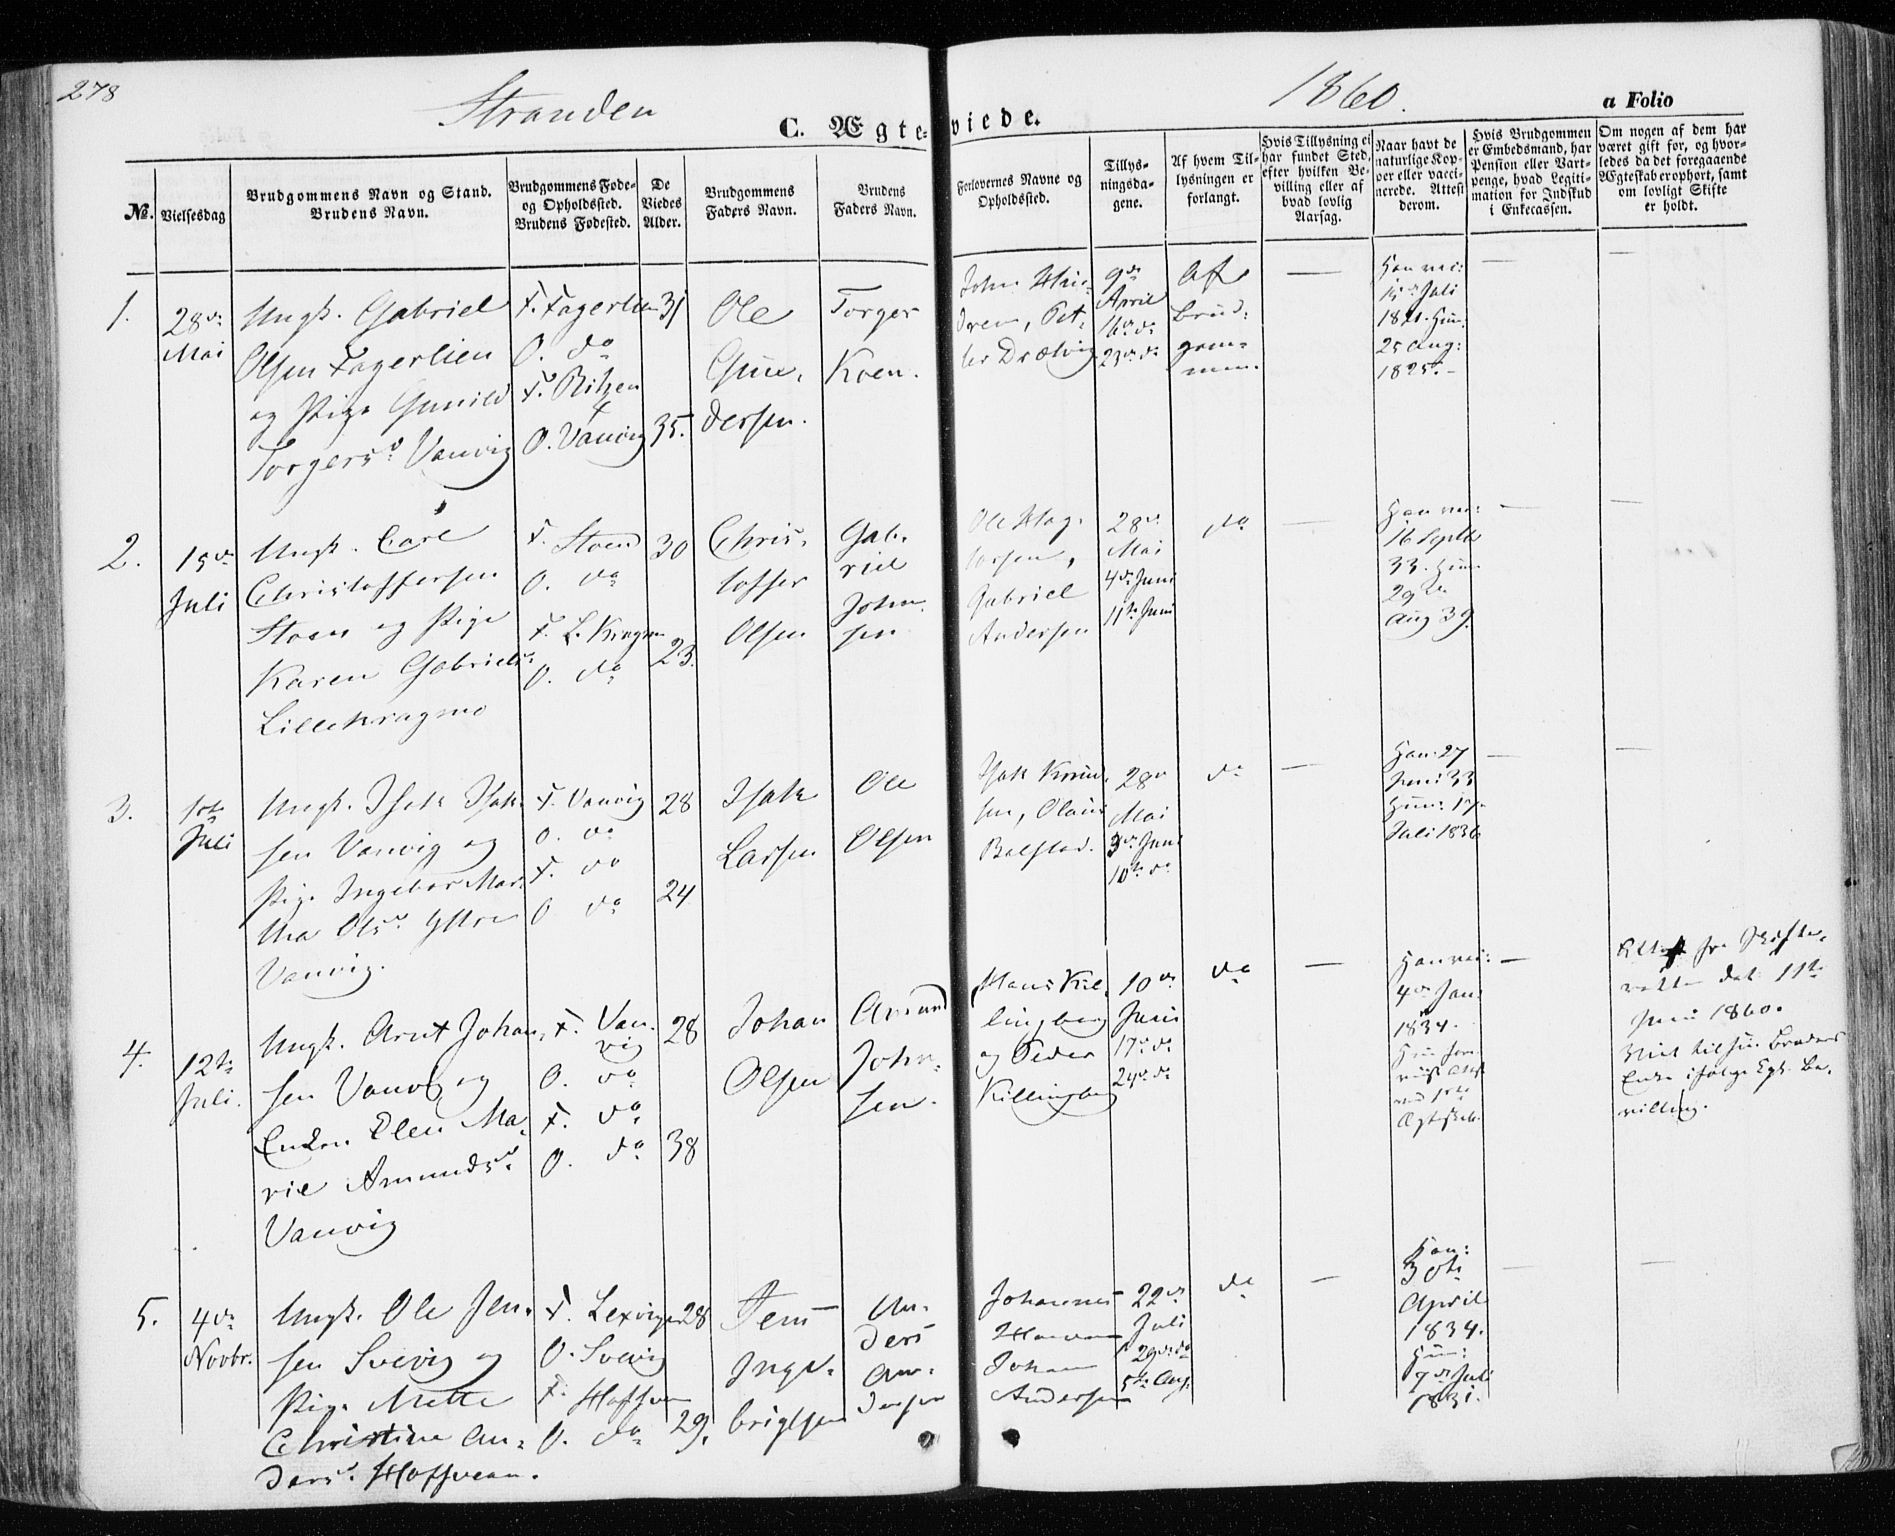 278
Stranden
1860.
a Folio
C. Ægteviede.
No.
Vielsesdag
Brudgommens Navn og Stand.
Brudens Navn.
Brudgommens Føde-
og Opholdssted.
Brudens Fødested.
De
Viedes
Alder.
Brudgommens
Faders Navn.
Brudens
Faders Navn.
Forlovernes Navne og
Opholdssted.
Tillys-
ningsda-
gene.
Af hvem Til-
lysningen er
forlangt.
Hvis Tillysning ei
har fundet Sted,
efter hvilken Be-
villing eller af
hvad lovlig
Aarsag.
Naar havt de
naturlige Kop-
per eller vacci-
nerede. Attest
derom.
Hvis Brudgommen
er Embedsmand, har
Pension eller Vart-
penge, hvad Legiti-
mation for Indskud
i Enkecassen.
Om nogen af dem har
været gift før, og hvor-
ledes da det foregaaende
Ægteskab er ophørt, samt
om lovligt Skifte
er holdt.
1.
28de
Mai
Ungk. Gabriel
Olsen Fagerlien
og Pige Gunild
Torgersd. Vanvig
F. Fagerlien
O. do
F.
O. Vanvig
31
35.
Ole
Gun-
dersen.
Torger
Koen.
John
9de
April
16de do
23de do
Af
Brud-
gom-
men.
Han vac:
15de Juli
Hun
25 Aug:
1825.
2.
15de
Juli
Ungk. Carl
Christoffersen
Stoen og Pige
Karen Gabrielsd.
Lillekragmo
F. Stoen
O. do
F. L. Kragmo
O. do
30
23.
Chris-
toffer
Olsen
Gab-
riel
John-
sen
Ole
Gabriel
Andersen
28de
Mai
4de Juni
11te Juni
do
Han vac:
16 Septbr
33. Hun
29de
Aug 39.
3.
Juli
Ungk. Isak Isak-
sen Vanvig og
Pige Ingebor Mar-
tha Olsd. Yttre
Vanvig.
F. Vanvig
O. do
F. do
O. do
28
24
Isak
Larsen
Ole
Olsen
Isak
sen, Olaus
Balstad.
28de
Mai
3de Juni
10de do
do
Han 27
Juni 33
Hun 17
Juli 1836
4.
12te
Juli.
Ungk. Arnt Johan-
sen Vanvig og
Enken Elen Ma-
rie Amundsd.
Vanvig
F. Van-
vig
O. do
F. do
O. do
28
38
Johan
Olsen
Amund
John-
sen.
Hans Kil-
lingberg
og Peder
Killingberg
10de
Juni
17de do
24de do
do
Han vac:
4de Jan:
1834.
Hun
Ægteskab.
Attest fra Skifte-
retten dat. 11te
Juni 1860.
Viet til sin Broders
Enke ifølge Kgl. Be-
villing.
5.
4de
Novbr.
Ungk. Ole Jen-
sen Solvig og
Pige Mette
Christine An-
dersd. Hoffvean.
F. Lexvigen
O. Solvig
F. Hoffvean
O. do
28
29.
Jens
Inge-
brigtsen
An-
ders
An-
dersen
Johannes
Johan
Andersen
22de
Juli
29de do
5te Aug.
do
Han:
30te
April
1834.
Hun:
7de Juli
1831.